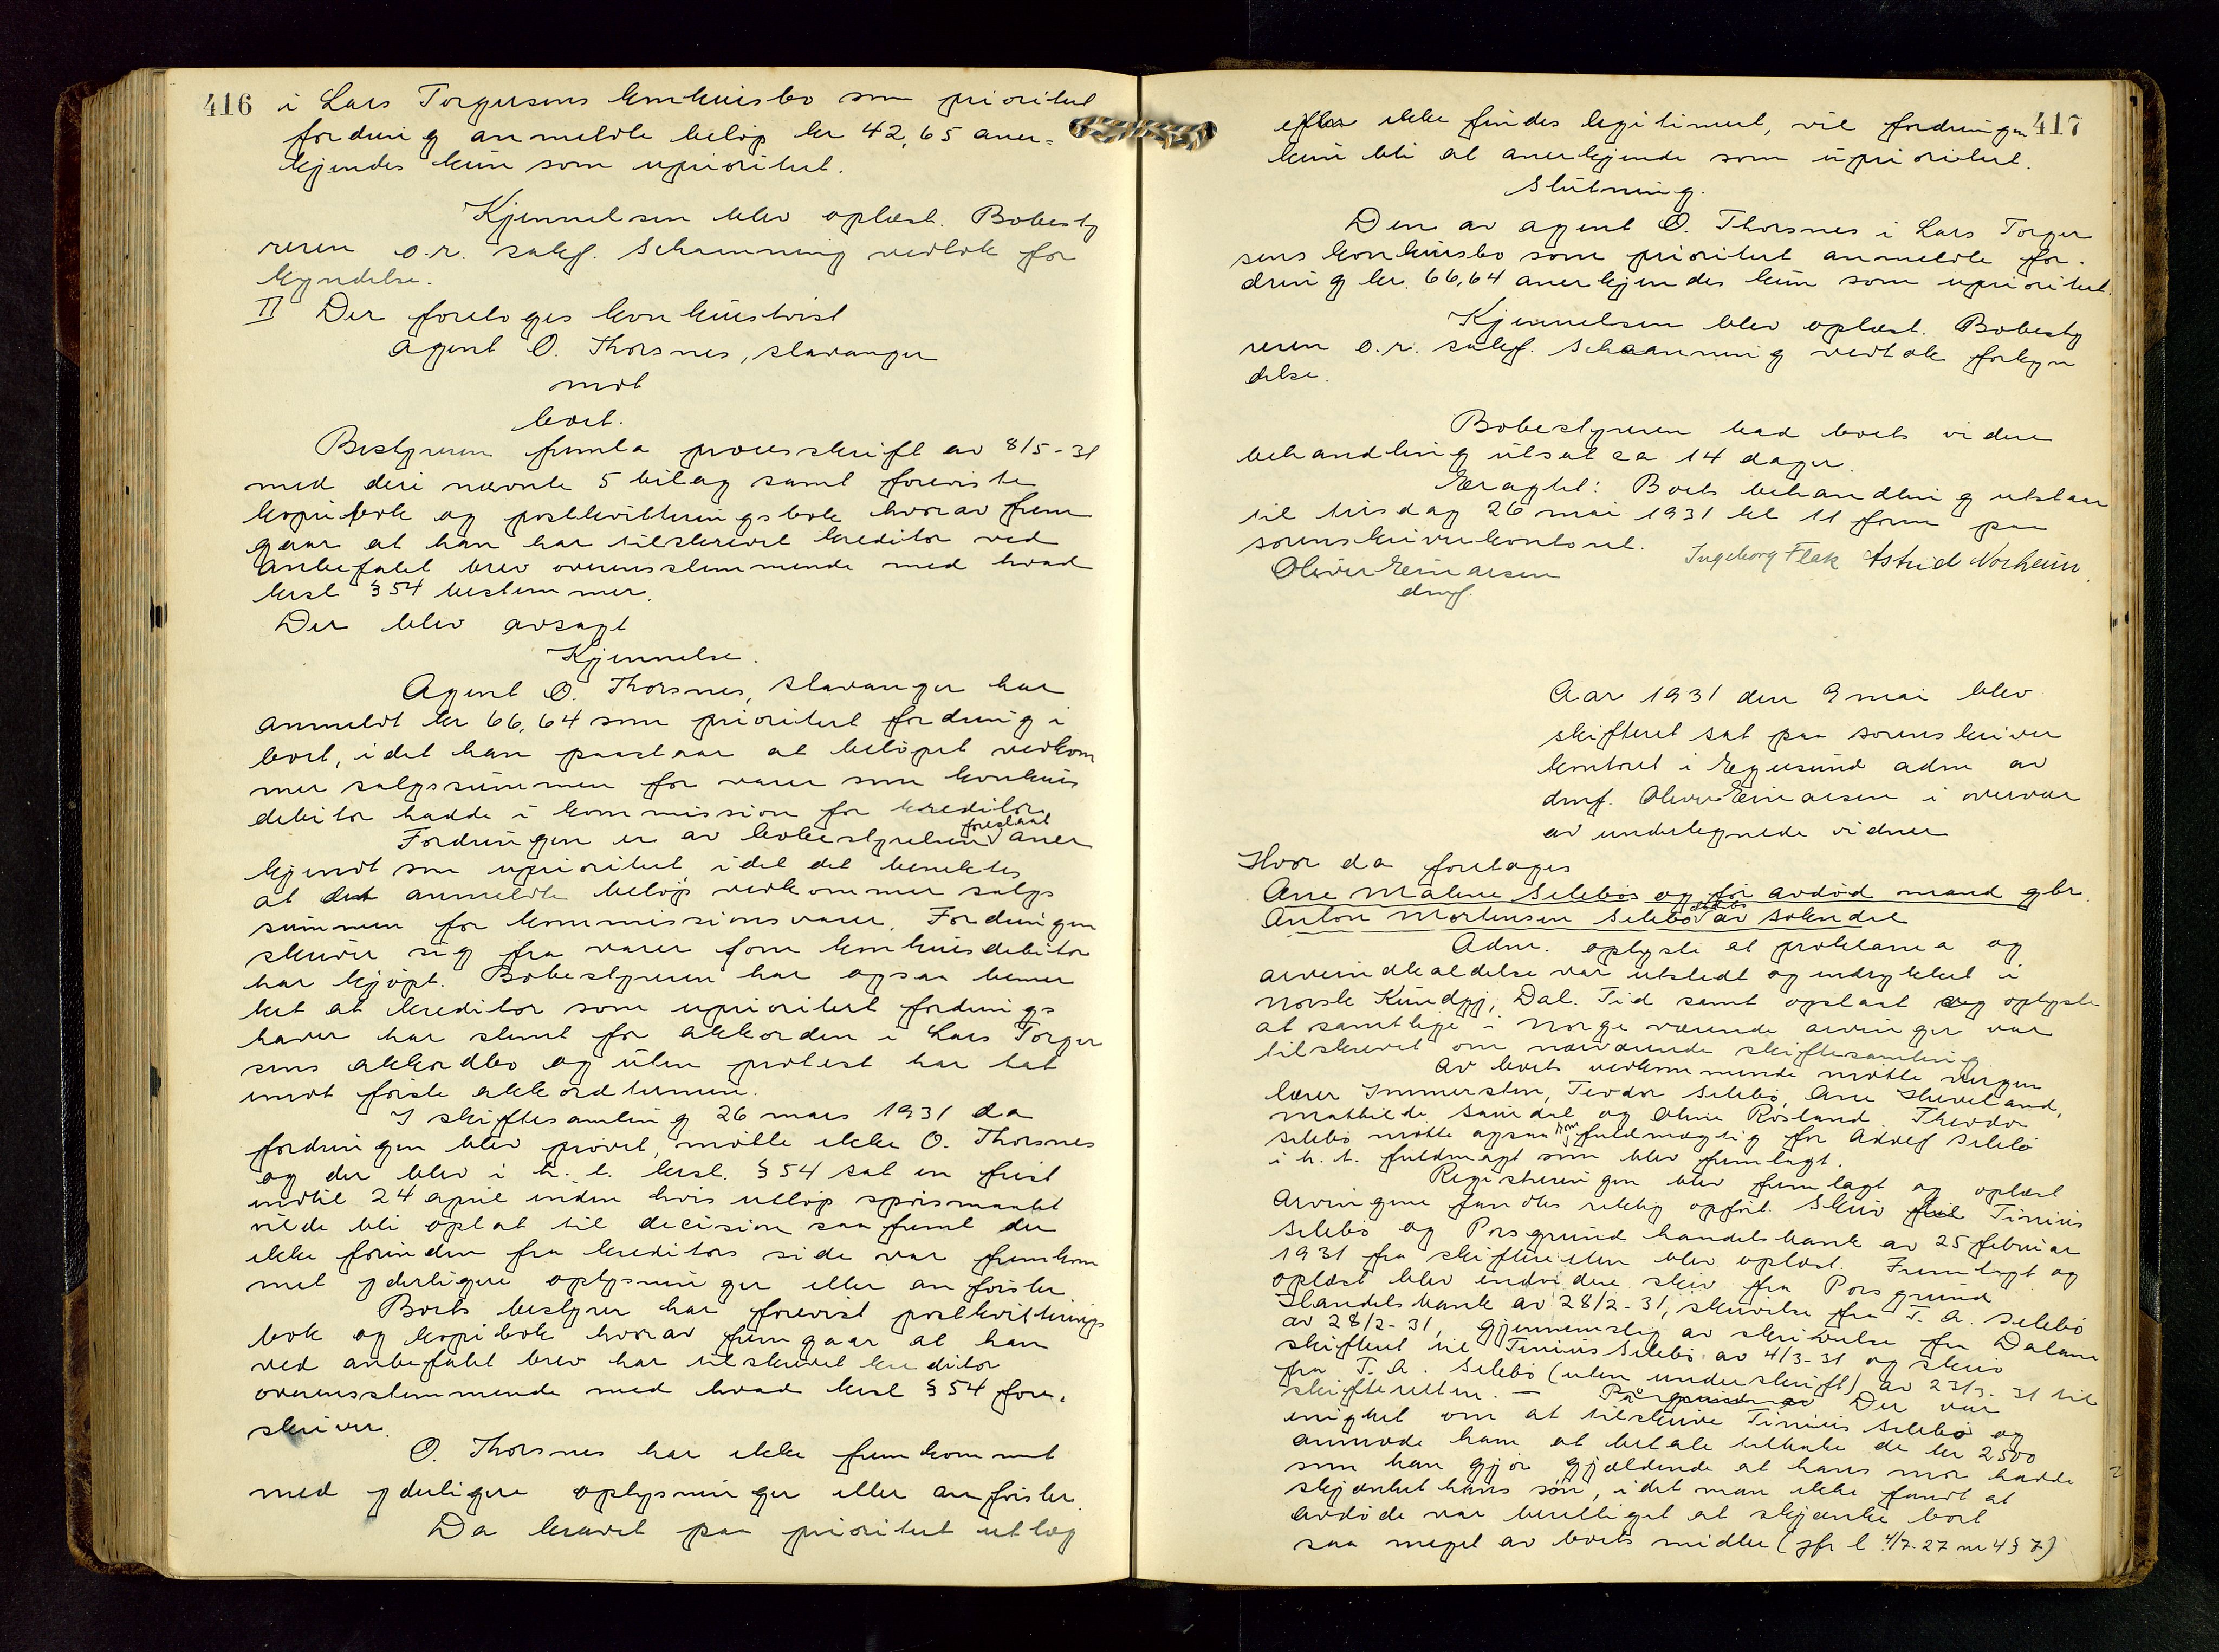 416
i Lars Torgersens konkursbo som prioritert
fordring anmeldte beløp kr 42,65 aner-
kjendes kun som uprioritert.
Kjennelsen blev oplæst. Bobesty
reren o.r. sakf. Schanning vedtok for
kyndelse.
II Der foretoges konkurstvist
Agent O. Thorsnes, Stavanger
mot
boet.
Bestyreren fremla processkrift av 8/5-31
med deri nævnte 5 bilag samt foreviste
kopibok og postkvitteringsbok hvorav frem
gaar at han har tilskrevet kreditor ved
anbefalet brev overensstemmende med hvad
kksl § 54 bestemmer.
Der blev avsagt
Kjennelse.
Agent O. Thorsnes, Stavanger har
anmeldt kr 66,64 som prioritert fordring i
boet, idet han paastaar at beløpet vedkom
mer salgssummen for varer som konkurs
debitor hadde i kommission for kreditor.
Fordringen er av bobestyreren foreslaat aner
kjendt som uprioritert, idet det benektes
at det anmeldte beløp vedkommer salgs
summen for kommissionsvarer. Fordringen
skriver sig fra varer som konkursdebitor
har kjøpt. Bobestyreren har ogsaa bemer
ket at kreditor som uprioritert fordrings
haver har stemt for akkorden i Lars Torger
sens akkordbo og uten protest har tat
imot første akkordtermin.
I skiftesamling 26 mars 1931 da
fordringen blev prøvet, møtte ikke O. Thorsnes
og der blev i h. t. kksl. § 54 sat en frist
indtil 24 april inden hvis utløp spørsmaalet
vilde bli optat til decision saafremt der
ikke forinden fra kreditors side var fremkom
met yderligere oplysninger eller anførsler.
Boets bestyrer har forevist postkvitterings
bok og kopibok hvorav fremgaar at han
ved anbefalet brev har tilskrevet kreditor
overensstemmende med hvad kksl § 54 fore-
skriver.
O. Thorsnes har ikke fremkommet
med yderligere oplysninger eller anførsler.
Da kravet paa prioritert utlæg
417
efter ikke findes legitimert, vil fordringen
kun bli at anerkjende som uprioritert.
Slutning.
Den av agent O. Thorsnes i Lars Torger
sens konkursbo som prioritert anmeldte for-
dring kr. 66,64 anerkjendes kun som uprioritert.
Kjennelsen blev oplæst. Bobesty
reren o.r. sakf. Schaanning vedtok forkyn
delse.
Bobestyreren bad boets videre
behandling utsat ca 14 dager.
Eragtet: Boets behandling utstaar
til tirsdag 26 mai 1931 kl 11 form paa
sorenskriverkontoret. Ingeborg Flak Astrid Norheim.
Oliver Einarsen
dmf.
Aar 1931 den 9 mai blev
skifteret sat paa sorenskriver
kontoret i Egersund adm av
dmf. Oliver Einarsen i overvær
av undertegnede vidner
Hvor da foretoges
Ane Maline Selebøs og før avdød mand gbr.
Anton Mortensen Selebø dødsbo av Sokndal
Adm. oplyste at proklama og
arveindkaldelse var utstedt og indrykket i
Norsk Kundgj., Dal. Tid samt opslaat og oplyste
at samtlige i Norge værende arvinger var
tilskrevet om nærværende skiftesamling
Av boets vedkommende møtte vergen
lærer Immerstein, Teodor Selebø, Ane Skaveland,
Mathilde Sandal og Oline Røsland. Theodor
Selebø møtte ogsaa som fuldmægtig for Adolf Selebø
i h. t. fuldmagt som blev fremlagt.
Registreringen blev fremlagt og oplæst
Arvingene fandtes riktig opført. Skriv fra Tinius
Selebø og Porsgrund handelsbank av 25 februar
1931 fra skifteretten blev oplæst. Fremlagt og
oplæst blev endvidere skriv fra Porsgrund
Handelsbank av 28/2-31, skrivelse fra T. A. Selebø
av 28/2-31, gjennemslag av skrivelse fra Dalane
skifteret til Tinius Selebø av 4/3-31 og skriv
fra T. A. Selebø (uten underskrift) av 23/3-31 til
skifteretten. — På grund av Der var
enighet om at tilskrive Tinius Selebø og
anmode ham at betale tilbake de kr 2500
som han gjør gjældende at hans mor hadde
skjænket hans søn, idet man ikke fandt at
avdøde var berettiget at skjænke bort
saa meget av boets midler (jfr l 4/7-27 nr 4 § 7)